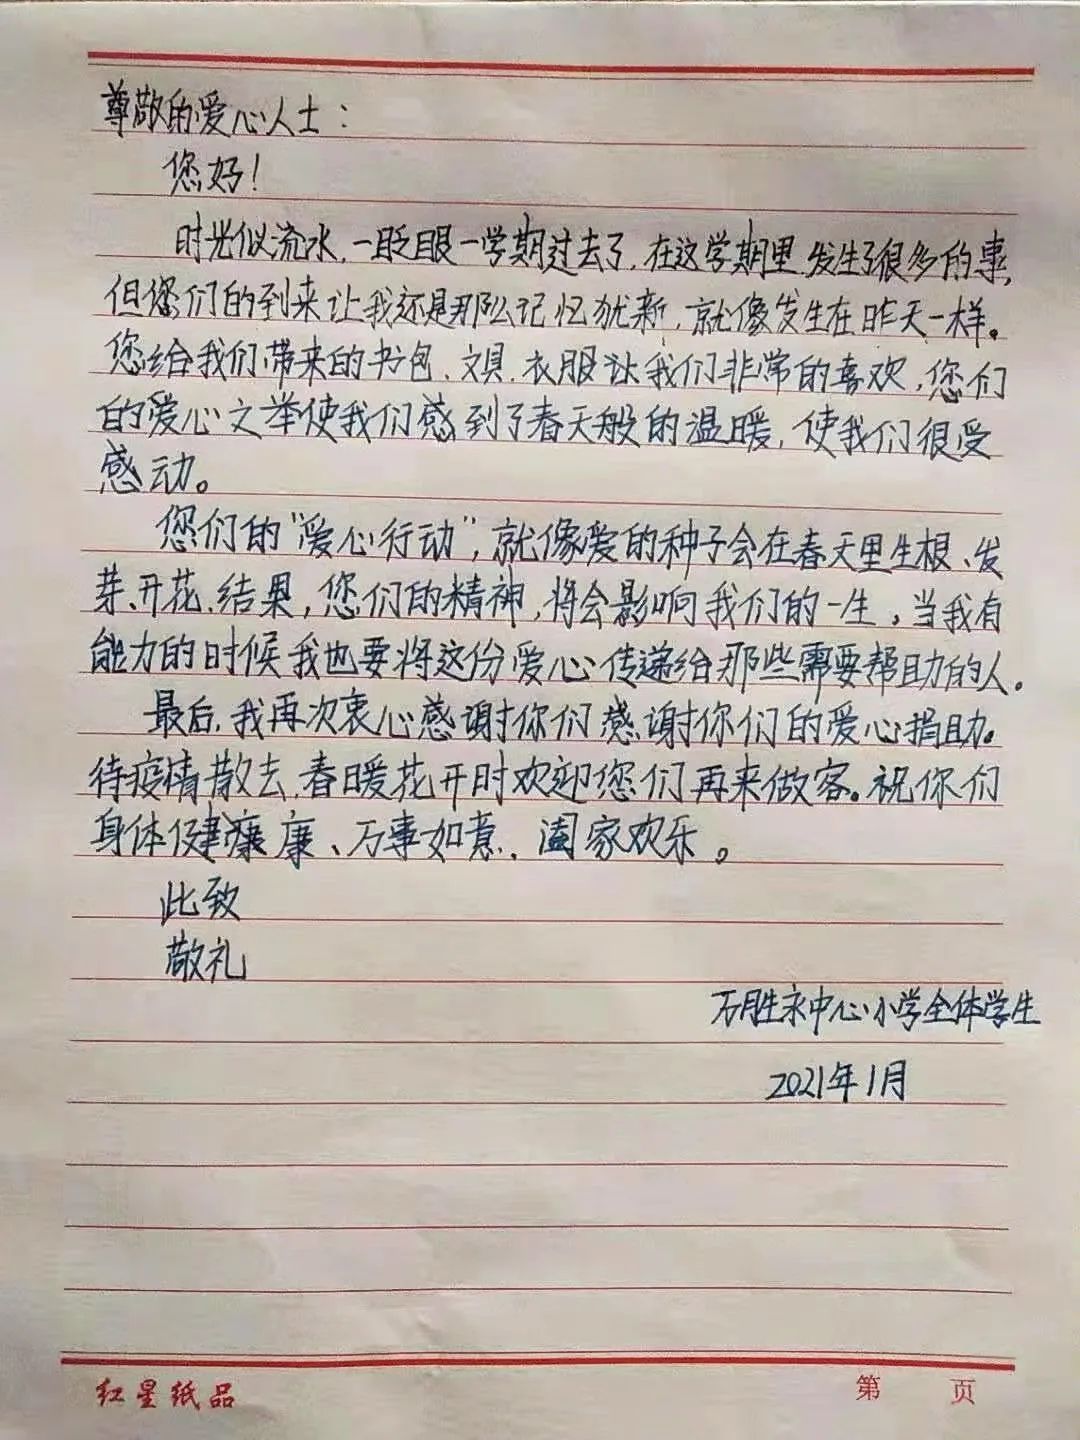 尊敬的爱心人士：
您好！
时光似流水，一眨眼一学期过去了，在这学期里发生了很多的事，
但您们的到来让我还是那么记忆犹新，就像发生在昨天一样。
您给我们带来的书包、文具、衣服让我们非常的喜欢，您们
的爱心之举使我们感到了春天般的温暖，使我们很受
感动。
您们的“爱心行动”，就像爱的种子会在春天里生根、发
芽、开花、结果，您们的精神，将会影响我们的一生，当我有
能力的时候我也要将这份爱心传递给那些需要帮助的人。
最后，我再次衷心感谢你们感谢你们的爱心捐助。
待疫情散去，春暖花开时欢迎您们再来做客。祝你们
身体健康、万事如意，阖家欢乐。
此致
敬礼
万胜永中心小学全体学生
2021年1月
红星纸品
第 页